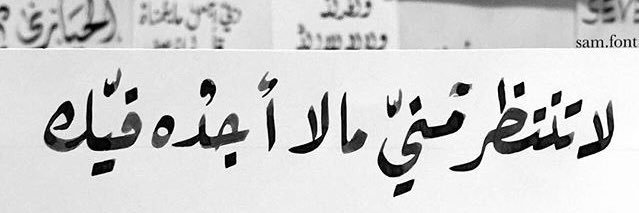 الخبازي
sam.font
لا تنتظر منّي مالا أجده فيّك